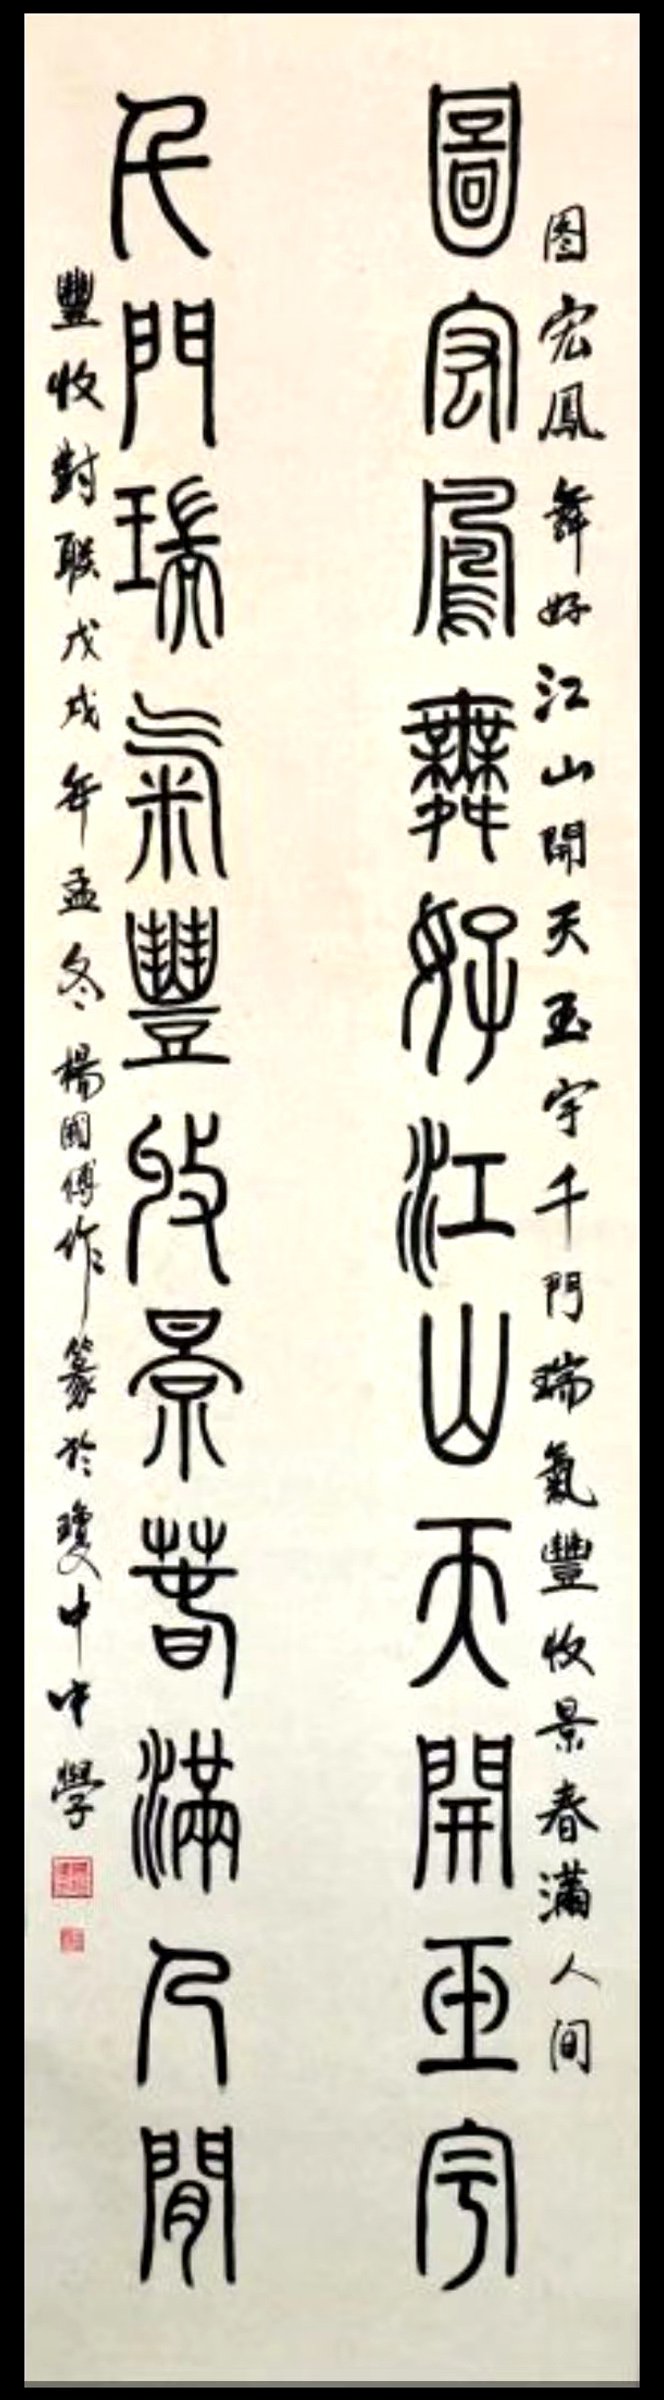 图宏鳳舞好江山開天玉宇千門瑞氣豐收景春滿人间
圖宏鳳舞好江山天開玉宇
千門瑞氣豐收景春滿人間
豐收對联戊戌年孟冬楊國傅作篆於瓊中中學